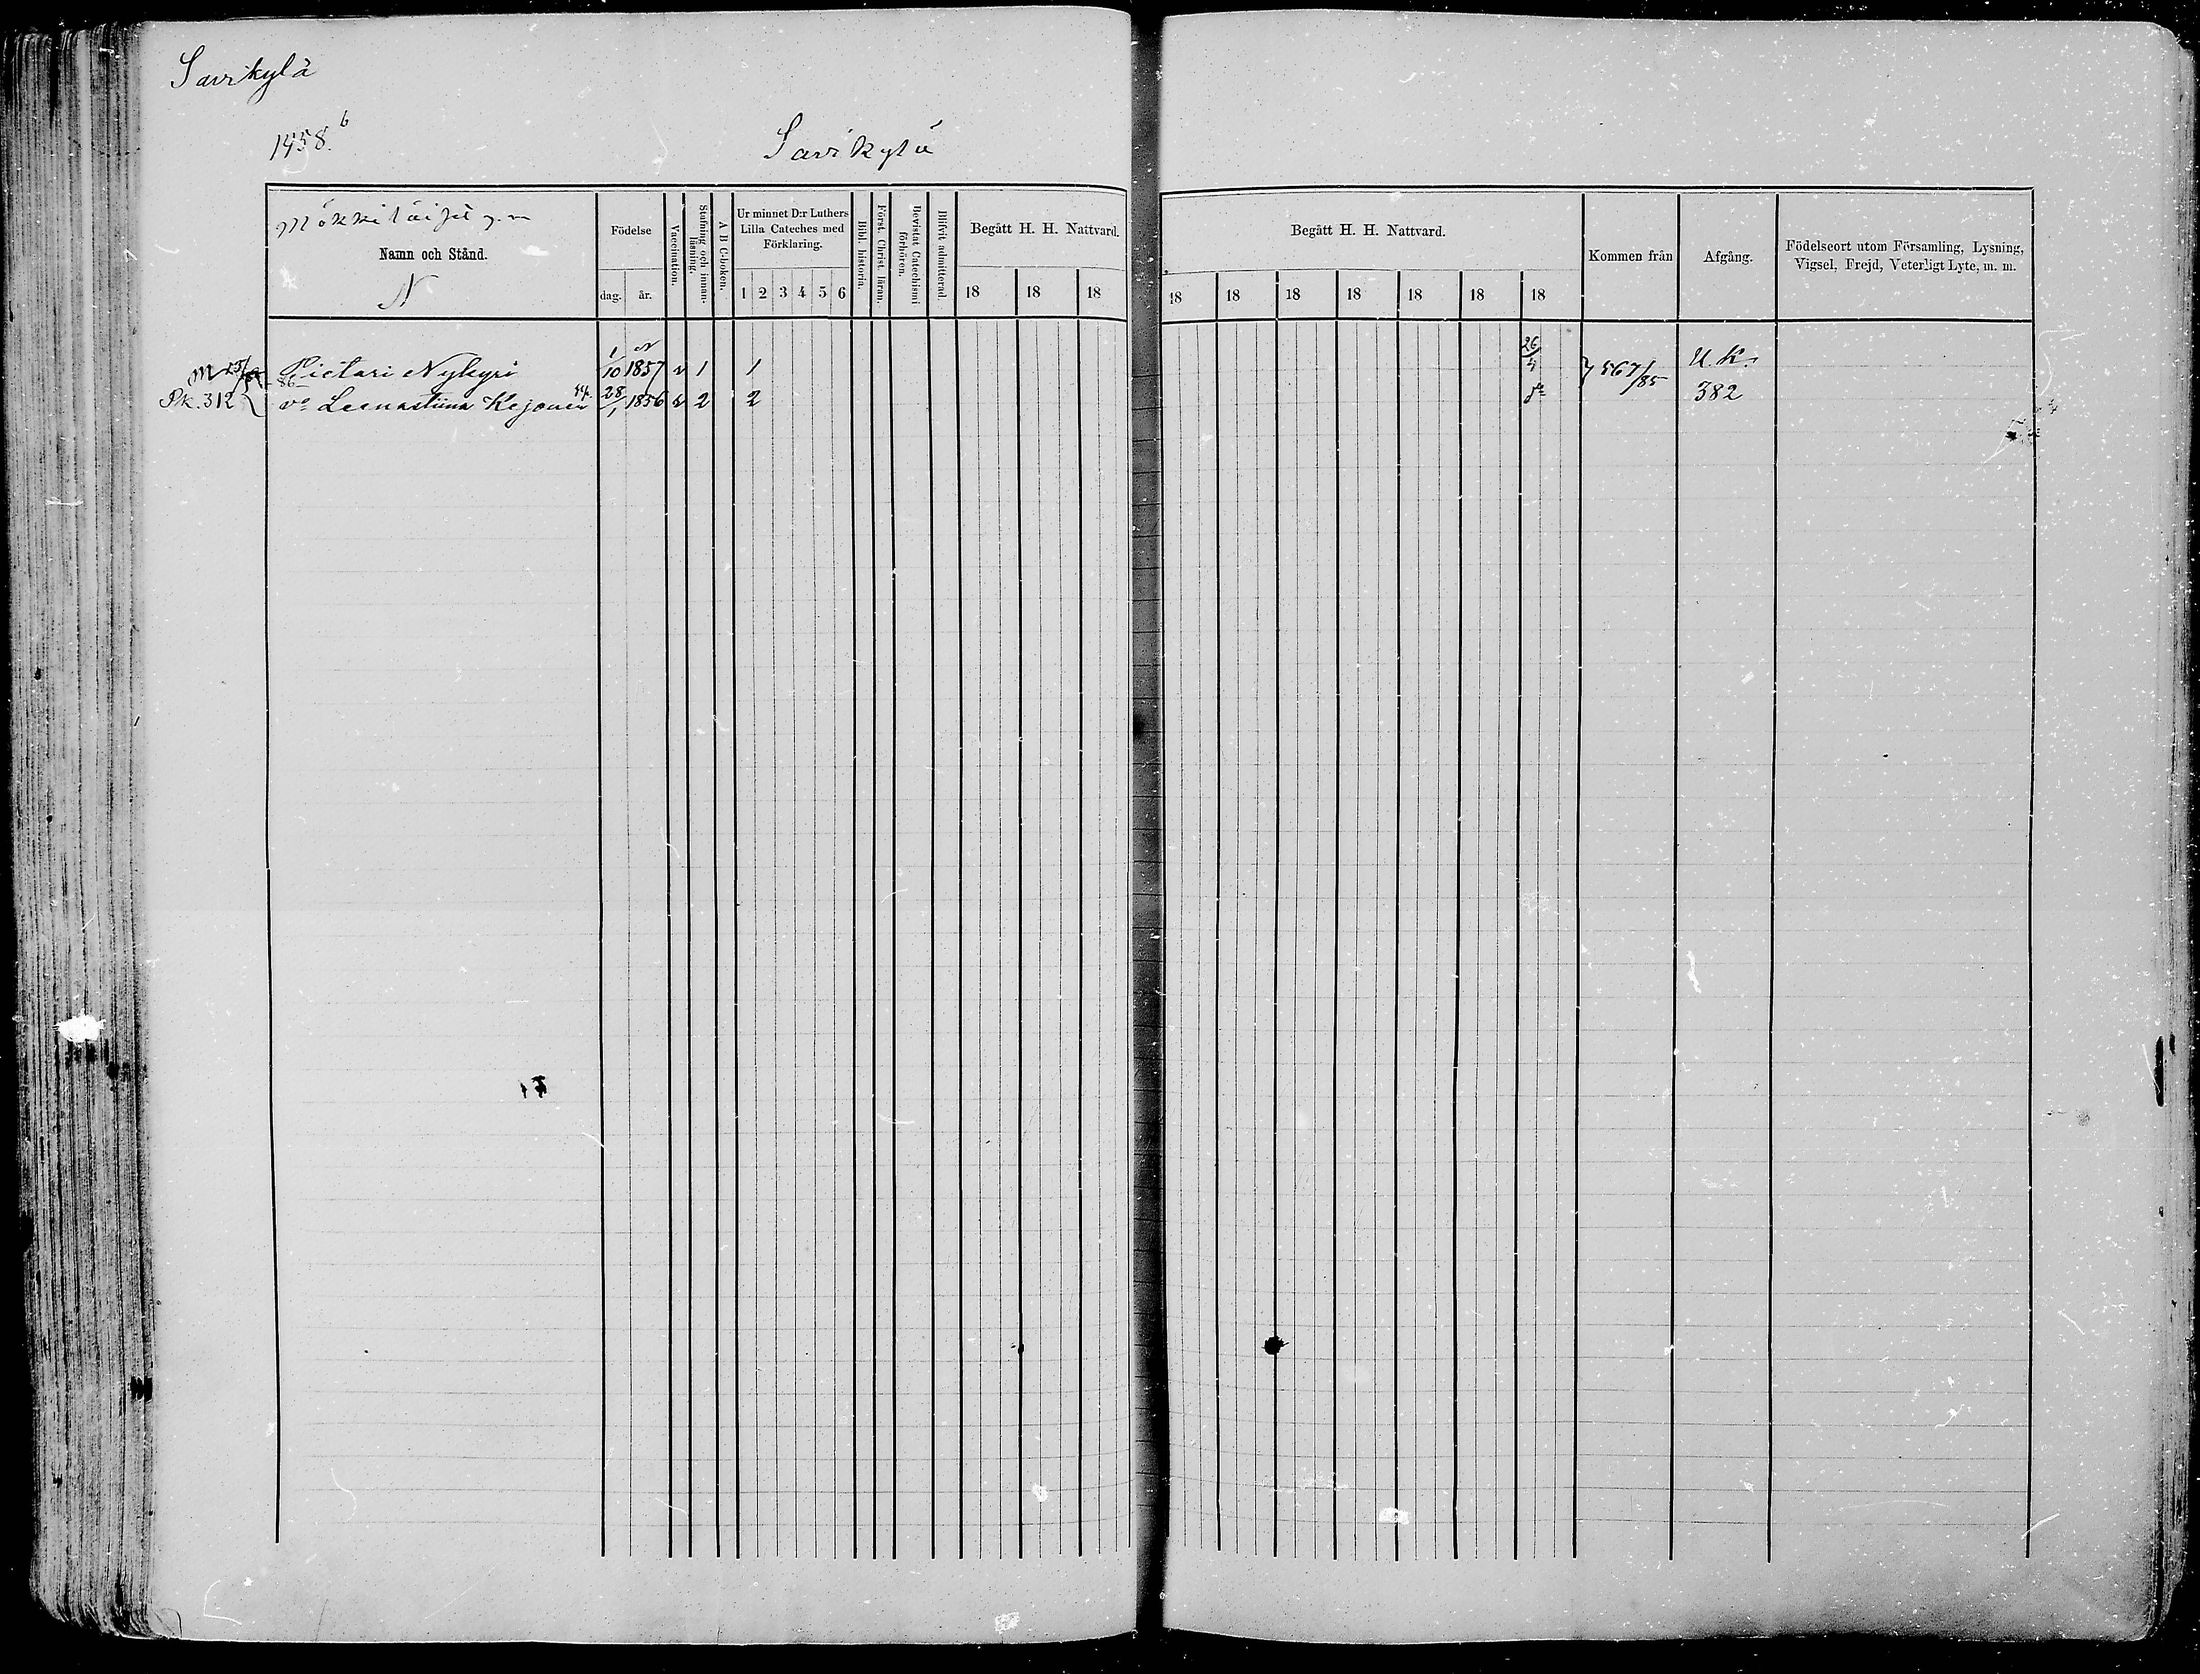 Savikylä
1458.b
Savikylä
Mökkiläisiä y.m
Namn och Stånd.
N
Födelse
dag. år.
Vaccination.
Stafning och innanläsning.
A B C-boken.
Ur minnet D:r Luthers Lilla Cateches med Förklaring.
1 2 3 4 5 6
Bibl. historia.
Först. Christ. läran.
Bevistat Catechismi förhören.
Blifvit admitterad.
Begått H. H. Nattvard.
18 18 18
Begått H. H. Nattvard.
18 18 18 18 18 18 18
Kommen från
Afgång.
Födelseort utom Församling, Lysning, Vigsel, Frejd, Veterligt Lyte, m. m.
Pietari Nykyri 1/10 1857 v 1 1 26/4 567/85 U. K.
Pk. 312 vo Leenastiina Kejonen 28/1 1856 v 2 2 do 382